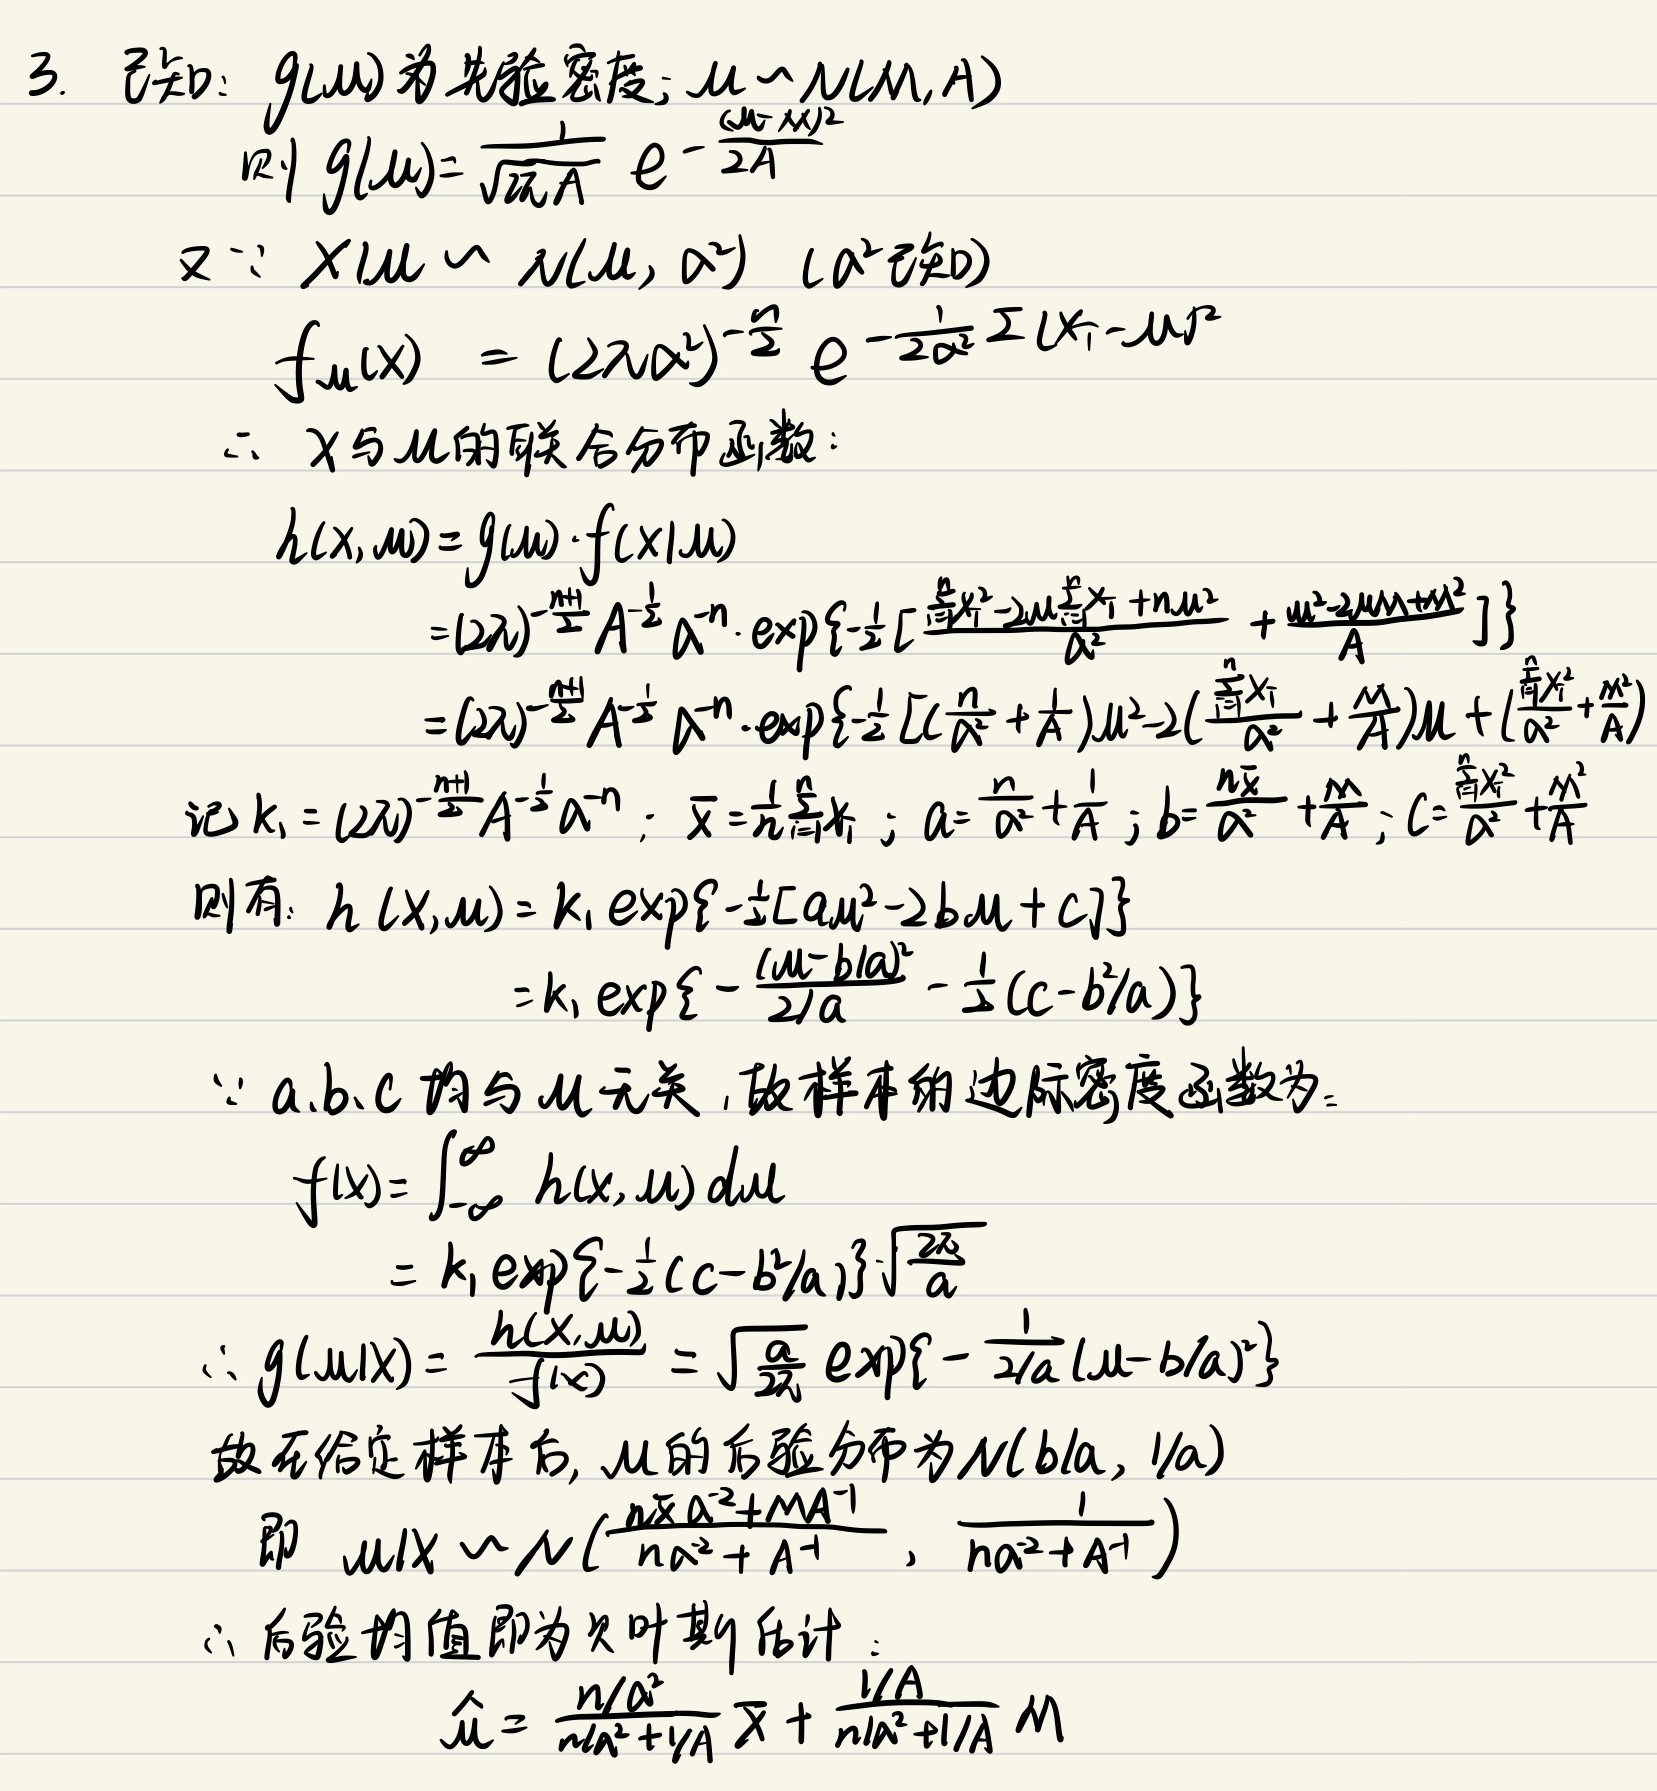 3. 已知: g(μ)为先验密度; μ ~ N(M, A)
则 g(μ) = \frac{1}{\sqrt{2πA}} e^{-\frac{(μ-M)^2}{2A}}
又∵ X|μ ~ N(μ, α²) (α²已知)
f_μ(x) = (2πα²)^{-\frac{n}{2}} e^{-\frac{1}{2α²} Σ(X_i-μ)²}
∴ X与μ的联合分布函数:
h(x,μ) = g(μ)·f(x|μ)
= (2π)^{-\frac{n+1}{2}} A^{-\frac{1}{2}} α^{-n}·exp{-\frac{1}{2}[\frac{\sum_{i=1}^{n}X_i^2 - 2μ\sum_{i=1}^{n}X_i + nμ²}{α²} + \frac{μ²-2μM+M²}{A}]}
= (2π)^{-\frac{n+1}{2}} A^{-\frac{1}{2}} α^{-n}·exp{-\frac{1}{2}[(\frac{n}{α²} + \frac{1}{A})μ² - 2(\frac{\sum_{i=1}^{n}X_i}{α²} + \frac{M}{A})μ + (\frac{\sum_{i=1}^{n}X_i^2}{α²} + \frac{M²}{A})
记 k₁ = (2π)^{-\frac{n+1}{2}} A^{-\frac{1}{2}} α^{-n}; \bar{x} = \frac{1}{n}\sum_{i=1}^{n}X_i; a = \frac{n}{α²} + \frac{1}{A}; b = \frac{n\bar{x}}{α²} + \frac{M}{A}; C = \frac{\sum_{i=1}^{n}X_i^2}{α²} + \frac{M²}{A}
则有: h(x,μ) = k₁ exp{-\frac{1}{2}[aμ² - 2bμ + C]}
= k₁ exp{-\frac{(μ-b/a)²}{2/a} - \frac{1}{2}(C-b²/a)}
∵ a、b、c 均与μ无关, 故样本的边际密度函数为:
f(x) = \int_{-∞}^{∞} h(x,μ) dμ
= k₁ exp{-\frac{1}{2}(C-b²/a)}·\sqrt{\frac{2π}{a}}
∴ g(μ|x) = \frac{h(x,μ)}{f(x)} = \sqrt{\frac{a}{2π}} exp{-\frac{1}{2/a}(μ-b/a)²}
故在给定样本后, μ的后验分布为N(b/a, 1/a)
即 μ|X ~ N(\frac{n\bar{x}α^{-2}+MA^{-1}}{nα^{-2}+A^{-1}}, \frac{1}{nα^{-2}+A^{-1}})
∴ 后验均值即为贝叶斯估计:
\hat{μ} = \frac{n/α²}{n/α²+1/A} \bar{x} + \frac{1/A}{n/α²+1/A} M